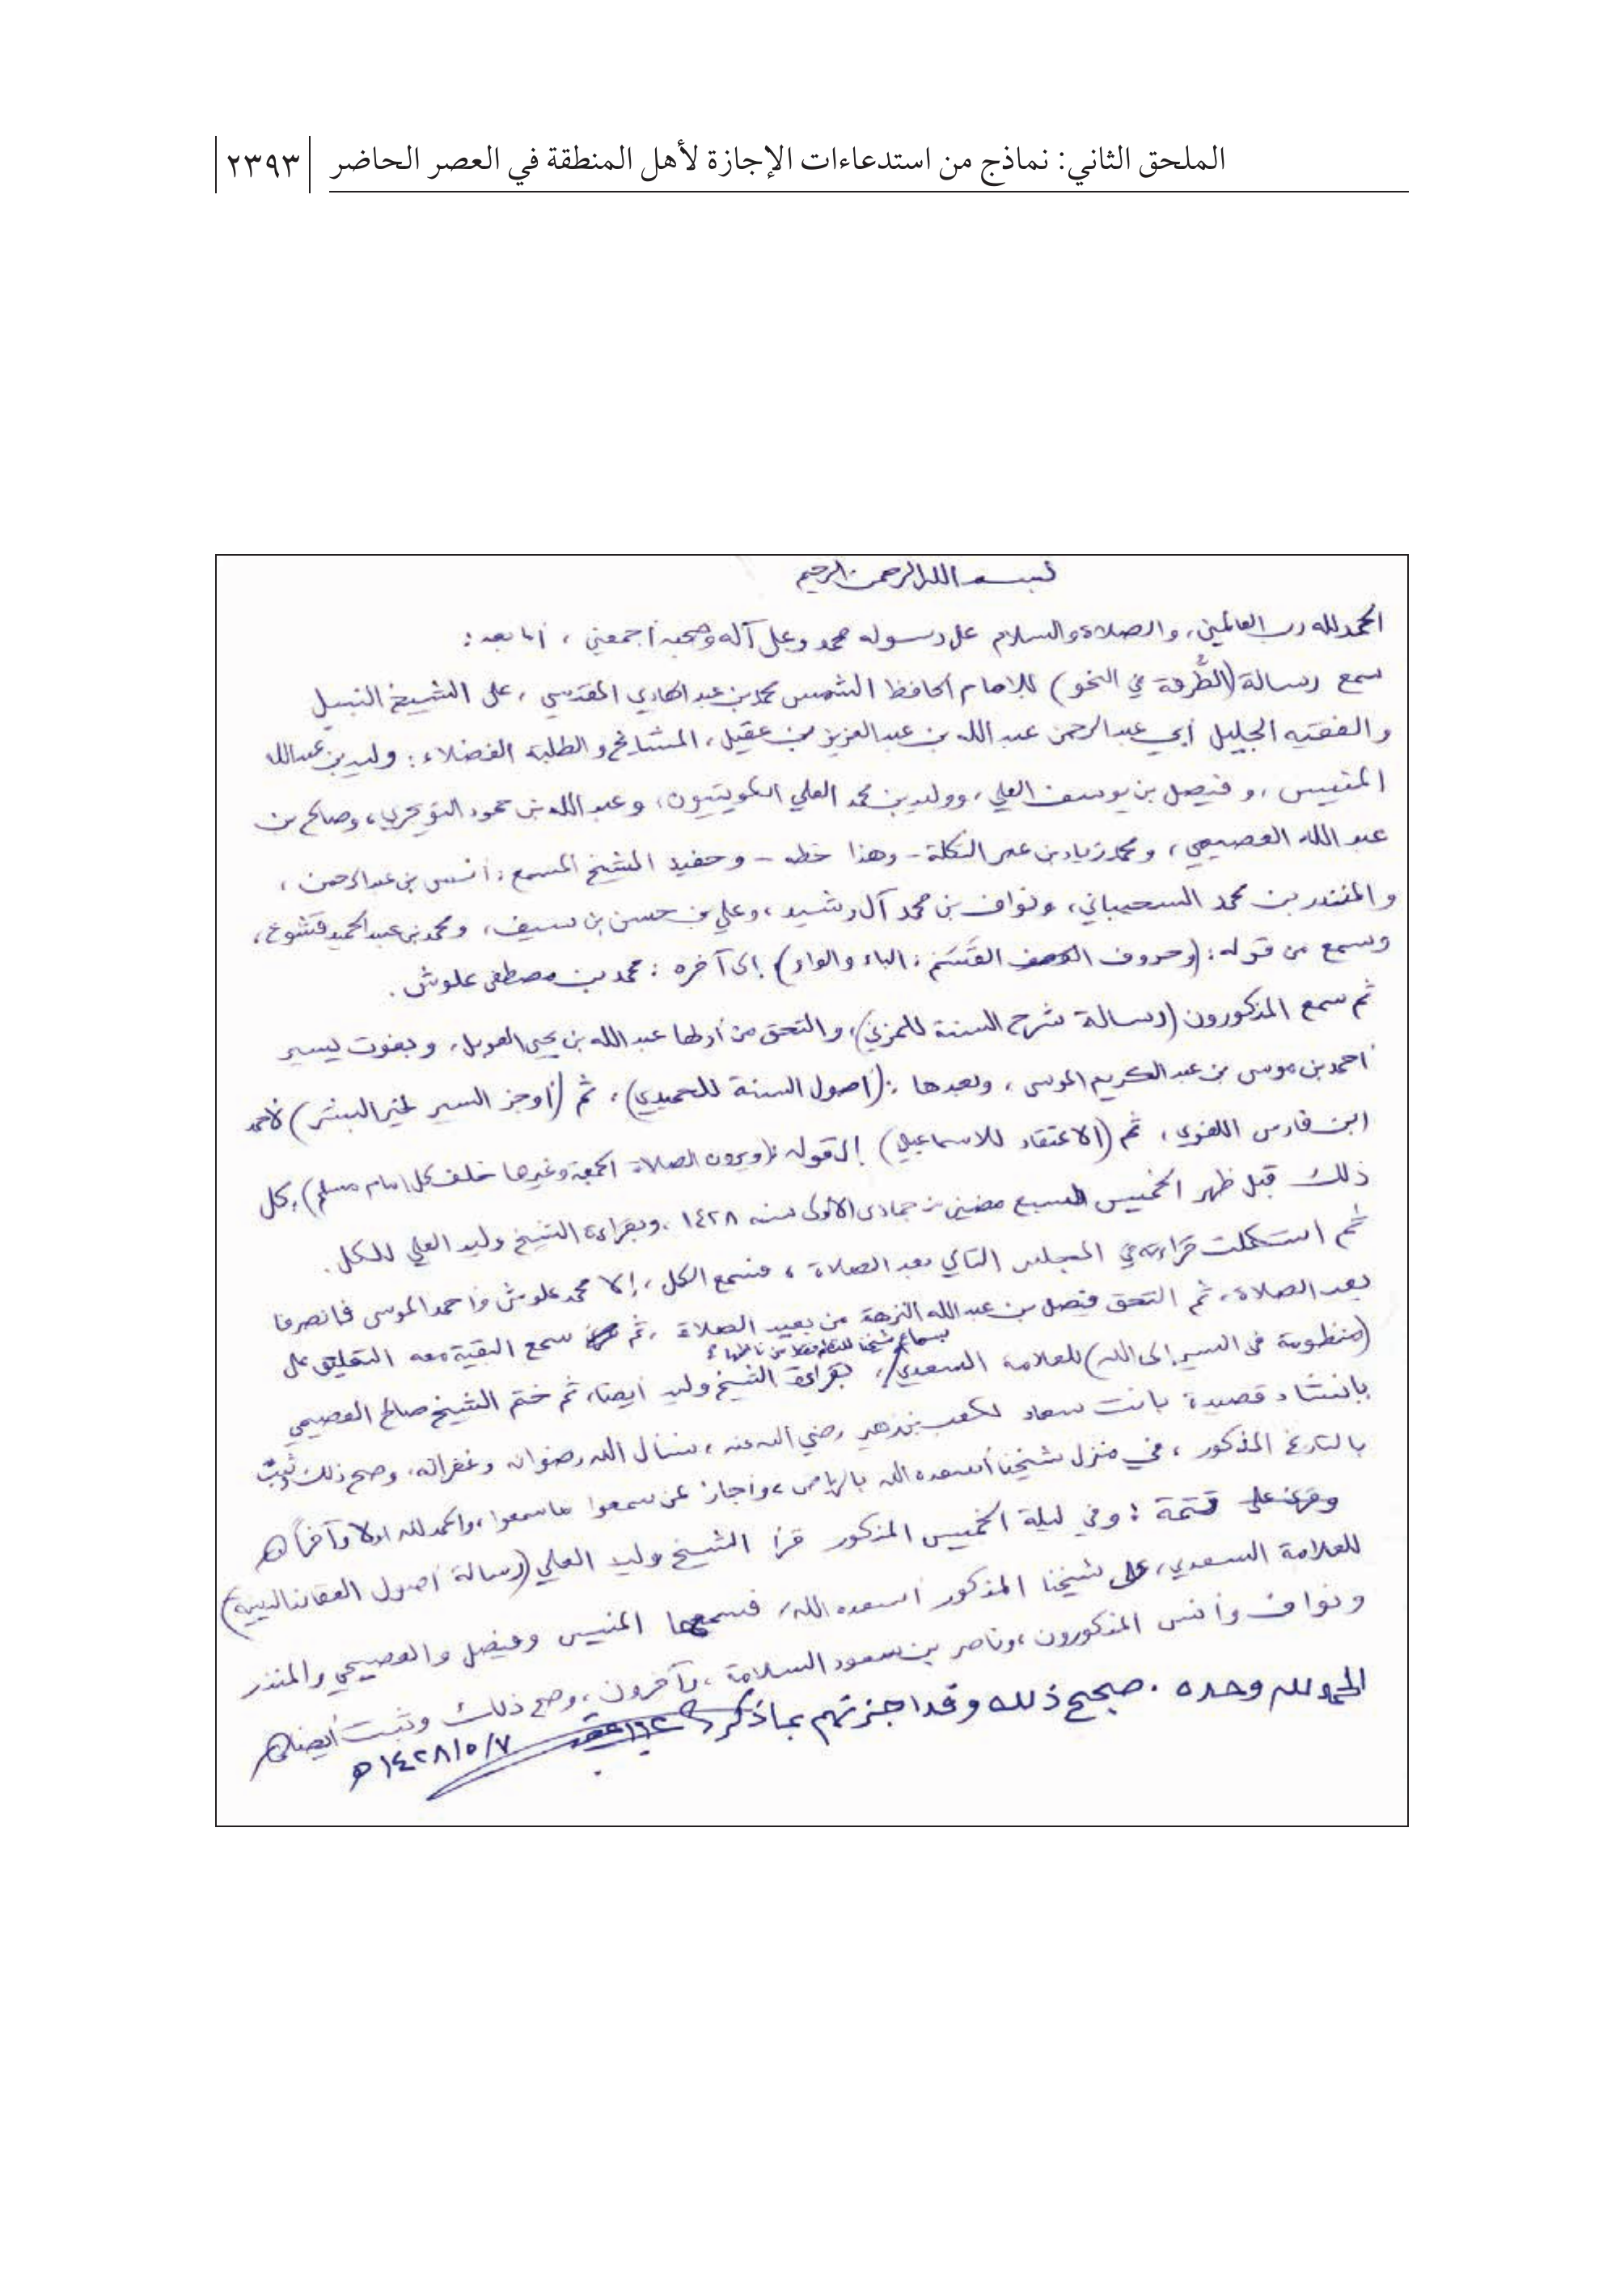 الملحق الثاني: نماذج من استدعاءات الإجازة لأهل المنطقة في العصر الحاضر ٢٣٩٣
بسم الله الرحمن الرحيم
الحمد لله رب العالمين، والصلاة والسلام على رسوله محمد وعلى آله وصحبه أجمعين، أما بعد:
سمع رسالة (الطُّرفة في النحو) للإمام الحافظ الشمس محمد بن عبد الهادي المقدسي، على الشيخ النبيل
والفقيه الجليل أبي عبد الرحمن عبد الله بن عبد العزيز بن عقيل، المشايخ والطلبة الفضلاء: وليد بن عبد الله
المنيس، وفيصل بن يوسف العلي، ووليد بن محمد العلي الكويتيون، وعبد الله بن حمود التويجري، وصالح بن
عبد الله العصيمي، ومحمد زياد بن عمر التكلة - وهذا خطه - وحفيد الشيخ المسمع: أنس بن عبد الرحمن،
والمنذر بن محمد السحيباني، ونواف بن محمد آل رشيد، وعلي بن حسن بن سيف، ومحمد بن عبد الحميد قشوع،
وسمع من قوله: (وحروف القَسَم: الباء والواو) إلى آخره: محمد بن مصطفى علوش.
ثم سمع المذكورون (رسالة شرح السنة للمزني)، والتحق من أولها عبد الله بن يحيى العوبل، وبفوت يسير
أحمد بن موسى بن عبد الكريم الموسى، وبعدها: (أصول السنة للحميدي)، ثم (أوجز السير لخير البشر) لأحمد
ابن فارس اللغوي، ثم (الاعتقاد للإسماعيلي) إلى قوله: (ويرون الصلاة الجمعة وغيرها خلف كل إمام مسلم)، كل
ذلك قبل ظهر الخميس لسبع مضين من جمادى الأولى سنة ١٤٢٨، وبقراءة الشيخ وليد العلي للكل.
ثم استكملت قراءته في المجلس التالي بعد الصلاة، فسمع الكل، إلا محمد علوش وأحمد الموسى فانصرفا
بعد الصلاة، ثم التحق فيصل بن عبد الله النزهة من بعيد الصلاة، ثم سمع البقية معه التعليق على
(منظومة في السير إلى الله) للعلامة السعدي، بسماع شيخنا للنظم فقط من ناظمها، بقراءة الشيخ وليد أيضا، ثم ختم الشيخ صالح العصيمي
بإنشاد قصيدة بانت سعاد لكعب بن زهير رضي الله عنه، نسأل الله رضوانه وغفرانه، وصح ذلك وثبت
بالتاريخ المذكور، في منزل شيخنا أسعده الله بالرياض، وأجاز لمن سمعوا ما سمعوا، والحمد لله أولا وآخرا اهـ
تتمة: وفي ليلة الخميس المذكور قرأ الشيخ وليد العلي (رسالة أصول العقائد الدينية)
للعلامة السعدي، على شيخنا المذكور أسعده الله، فسمعها المنيس وفيصل والعصيمي والمنذر
ونواف وأنس المذكورون، وناصر بن سعود السلامة، وآخرون، وصح ذلك وثبت أيضا اهـ
الحمد لله وحده. صحيح ذلك وقد أجزتهم بما ذكر
١٤٢٨/٥/٧ هـ